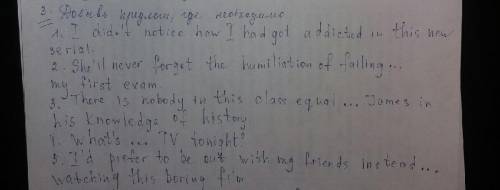 3. Добавь предлоги, где необходимо
1. I didn't notice how I had got addicted in this new
serial.
2. She'll never forget the humiliation of failing...
my first exam.
3. There is nobody in this class equal ... James in
his knowledge of history
4. What's ... TV tonight?
5. I'd prefer to be out with my friends instead...
watching this boring film